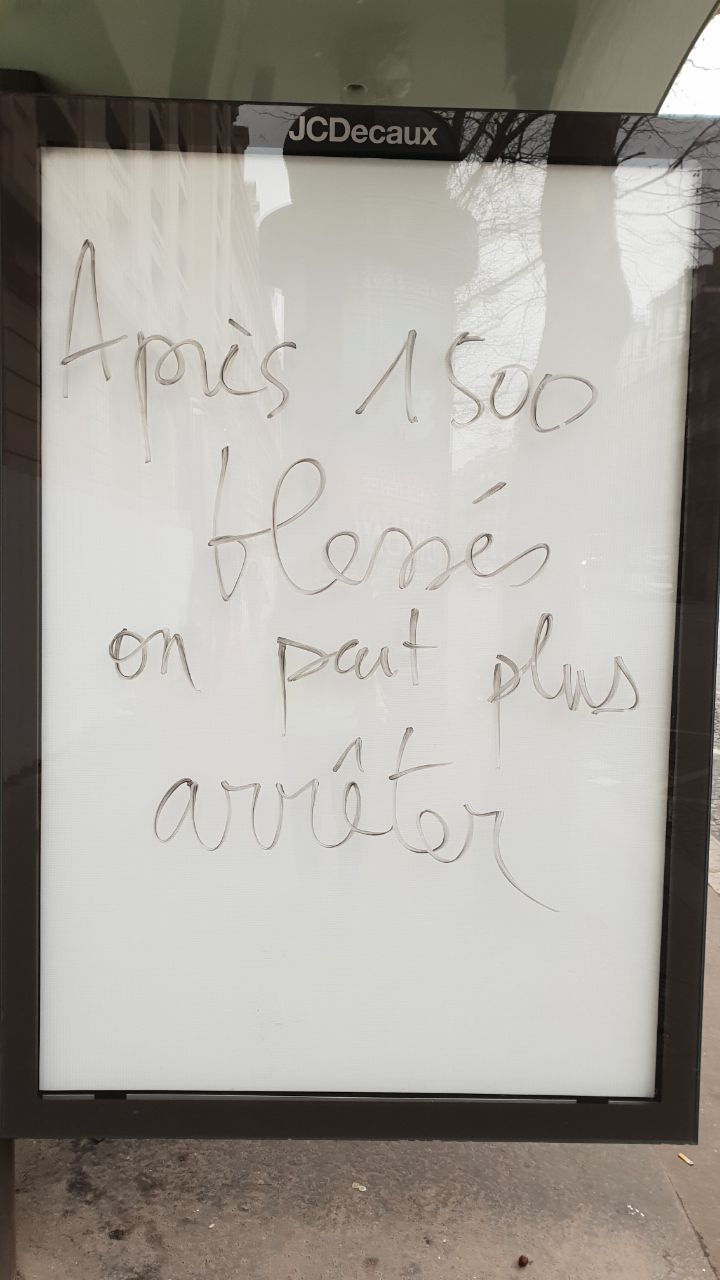 JCDecaux
Après 1500
blessés
on peut plus
arrêter